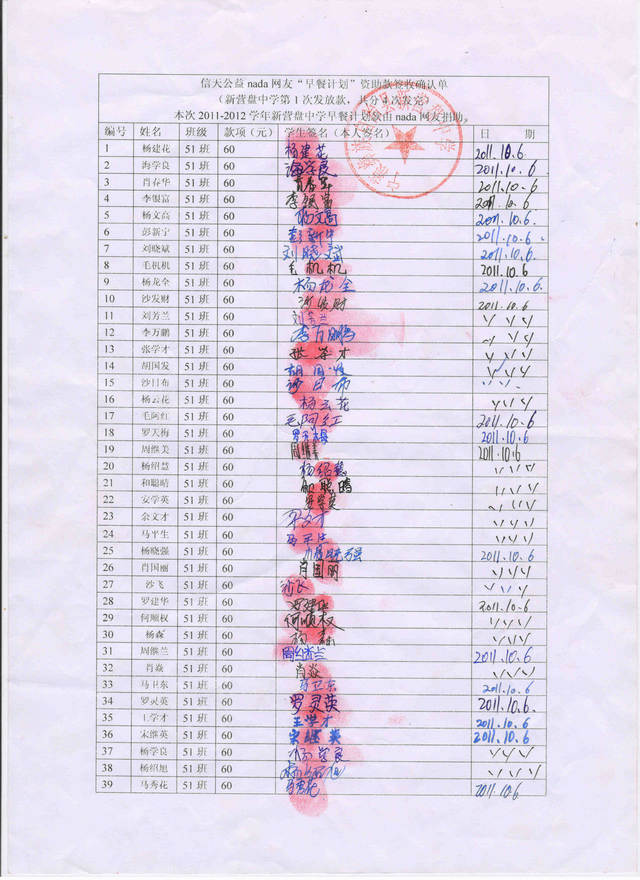 信天公益 nada 网友“早餐计划”资助款签收确认单
（新营盘中学第 1 次发放款，共分 4 次发完）
本次 2011-2012 学年新营盘中学早餐计划款由 nada 网友捐助。
编号 姓名 班级 款项（元） 学生签名（本人签名） 日 期
1 杨建花 51 班 60 杨建花 2011.10.6
2 海学良 51 班 60 海学良 2011.10.6
3 肖春华 51 班 60 肖春华 2011.10.6
4 李银富 51 班 60 李银富 2011.10.6
5 杨文高 51 班 60 杨文高 2011.10.6
6 彭新宁 51 班 60 彭新宁 2011.10.6
7 刘晓斌 51 班 60 刘晓斌 2011.10.6
8 毛机机 51 班 60 毛机机 2011.10.6
9 杨龙全 51 班 60 杨龙全 2011.10.6
10 沙发财 51 班 60 沙发财 2011.10.6
11 刘芳兰 51 班 60 刘芳兰
12 李万鹏 51 班 60 李万鹏
13 张学才 51 班 60 张学才
14 胡国发 51 班 60 胡国发
15 沙日布 51 班 60 沙日布
16 杨云花 51 班 60 杨云花
17 毛阿红 51 班 60 毛阿红 2011.10.6
18 罗天梅 51 班 60 罗天梅 2011.10.6
19 周维美 51 班 60 周维美 2011.10.6
20 杨绍慧 51 班 60 杨绍慧
21 和聪晴 51 班 60
22 安学英 51 班 60 安学英
23 余文才 51 班 60 余文才
24 马平生 51 班 60 马平生
25 杨晓强 51 班 60 杨晓强 2011.10.6
26 肖国丽 51 班 60 肖国丽
27 沙飞 51 班 60 沙飞
28 罗建华 51 班 60 罗建华 2011.10.6
29 何顺权 51 班 60 何顺权
30 杨森 51 班 60 杨森
31 周继兰 51 班 60 周继兰 2011.10.6
32 肖焱 51 班 60 肖焱
33 马卫东 51 班 60 马卫东 2011.10.6
34 罗灵英 51 班 60 罗灵英 2011.10.6
35 王学才 51 班 60 王学才 2011.10.6
36 宋继英 51 班 60 宋继英 2011.10.6
37 杨学良 51 班 60 杨学良
38 杨绍旭 51 班 60 杨绍旭
39 马秀花 51 班 60 马秀花 2011.10.6